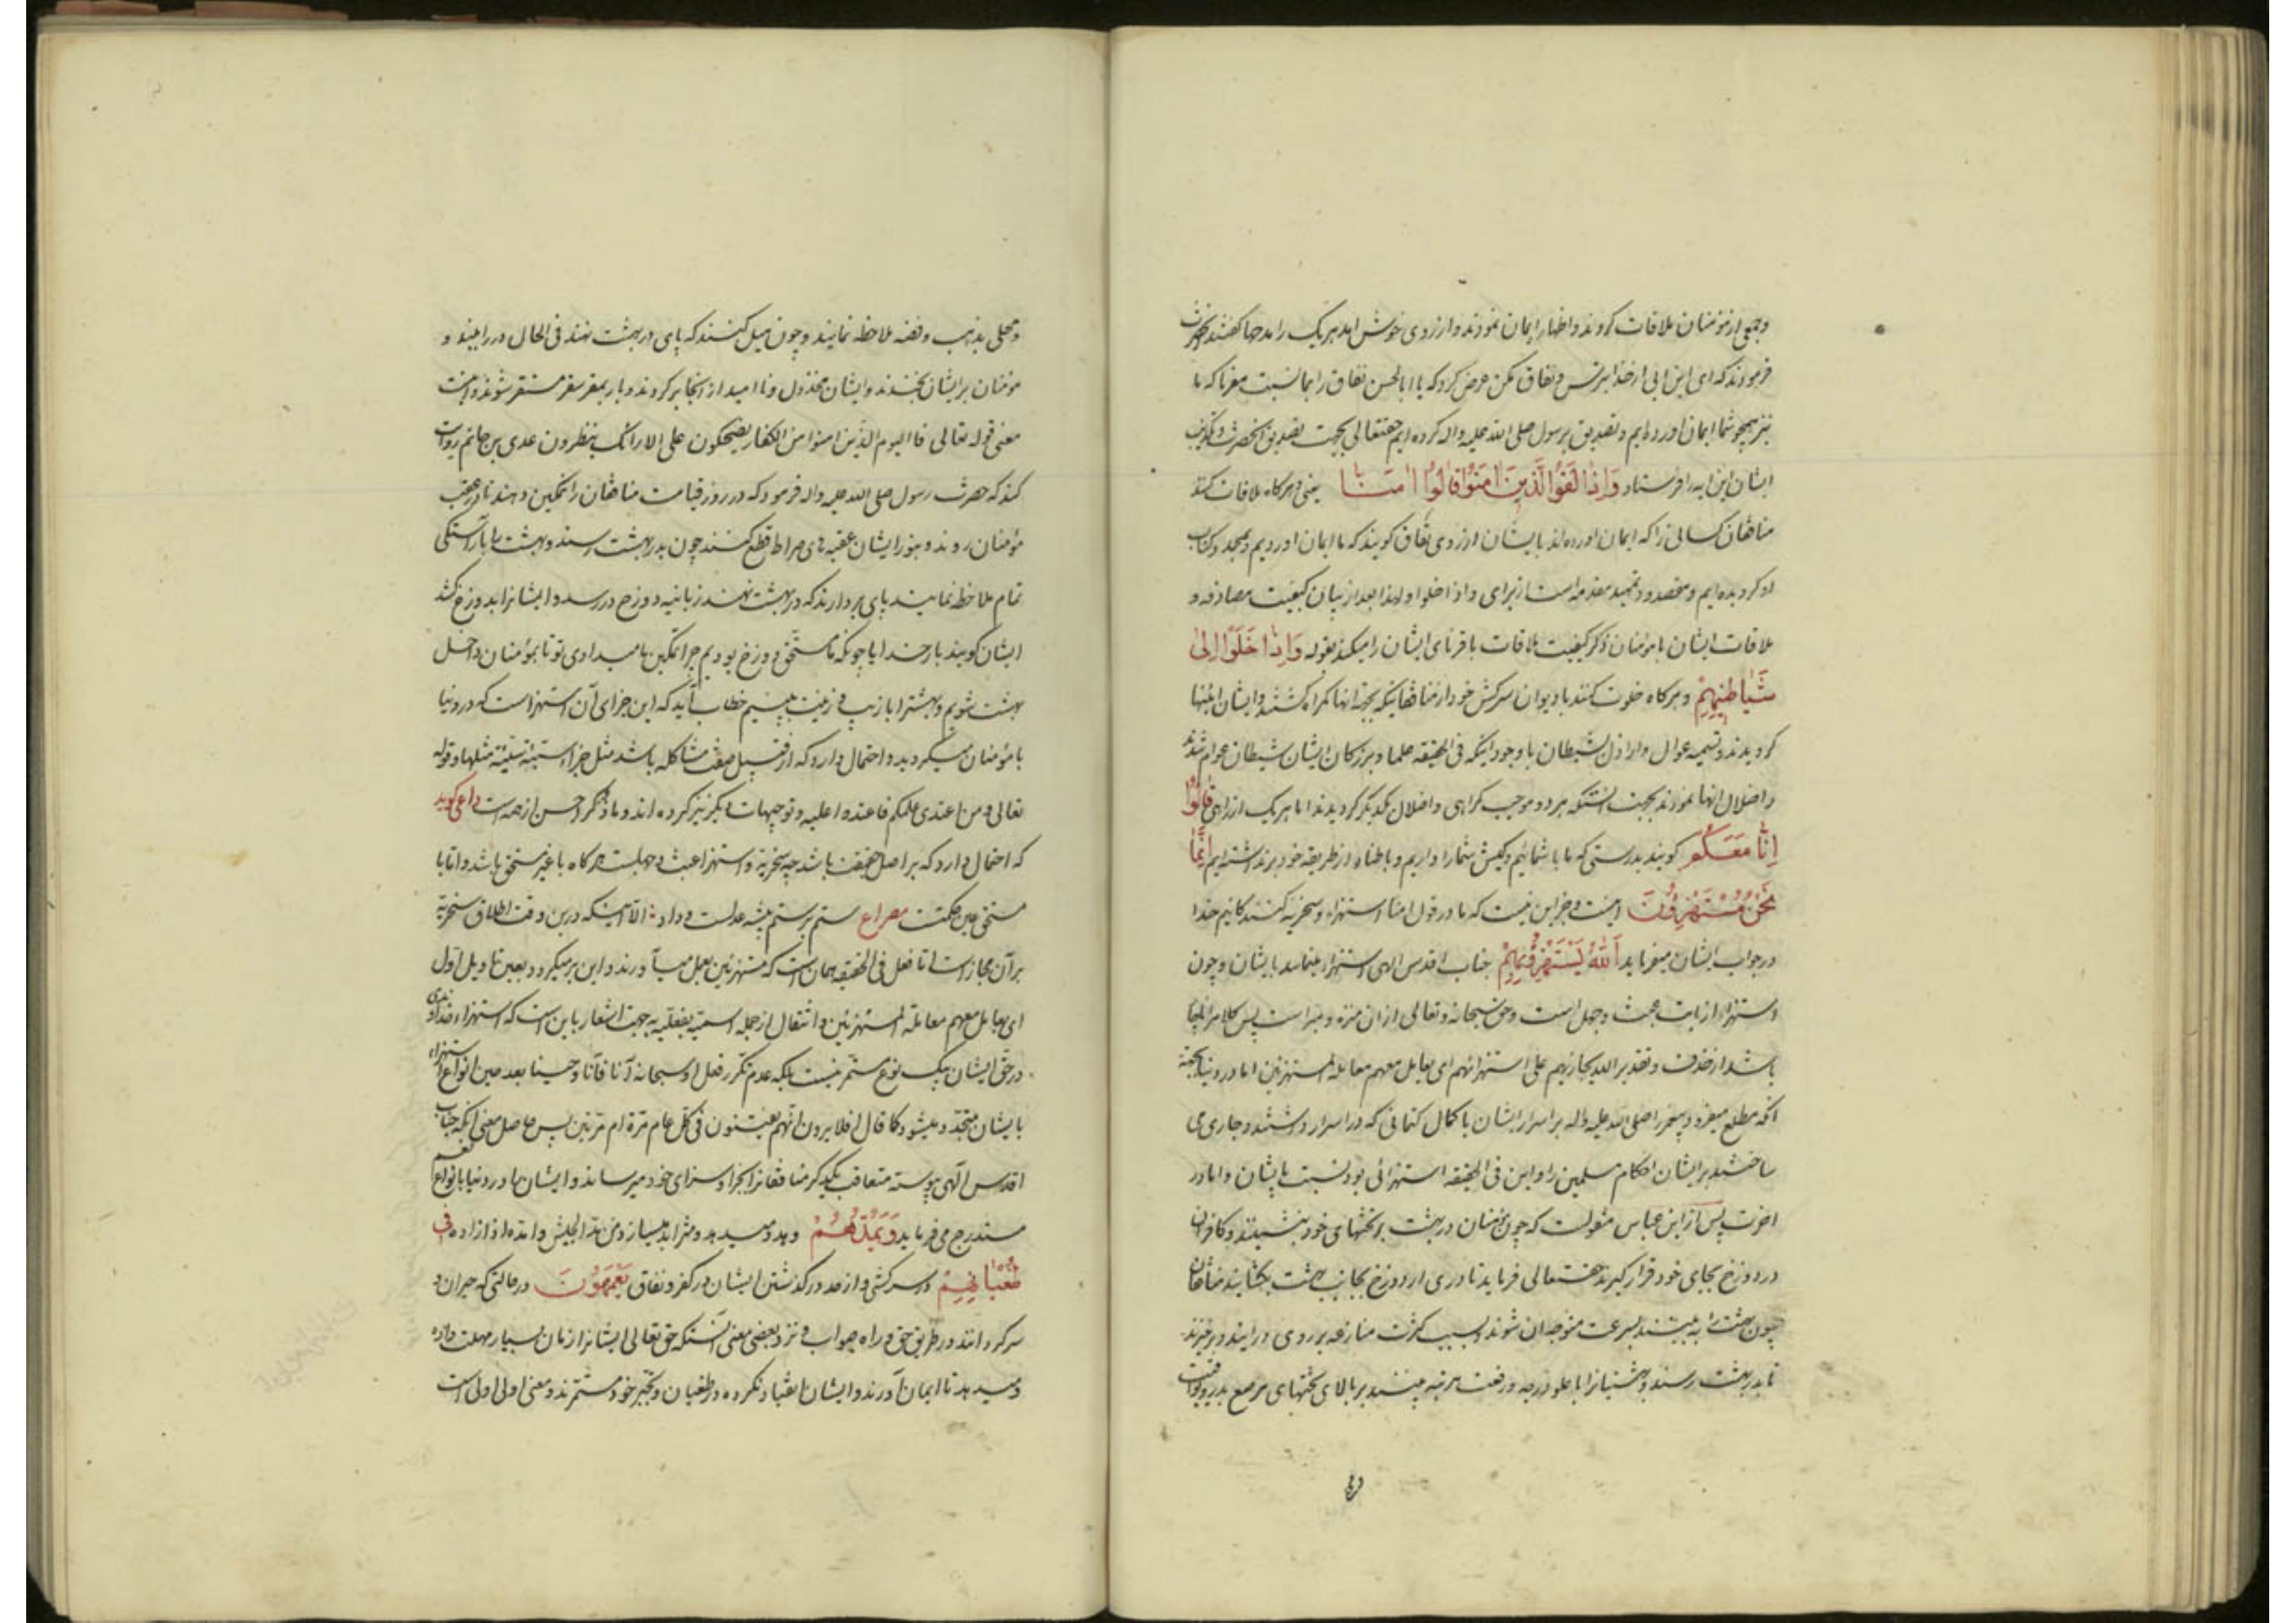 وجمعی از مؤمنان ملاقات کردند و اظهار ایمان نمودند و از روی خوش امد هر یک را مدحها گفتند حضرت
فرمودند که ای ابن ابی از خدا بترس و نفاق مکن عرض کرد که یا ابا الحسن نفاق را بما نسبت مفرما که ما
نیز همچو شما ایمان اورده ایم و تصدیق برسول صلی الله علیه واله کرده ایم حقتعالی بجهت تصدیق انحضرت و تکذیب
ایشان این ایه را فرستاد وَاِذَا لَقُوا الَّذِینَ امَنُوا قَالُوا امَنَّا یعنی و هرکاه ملاقات کنند
منافقان کسانی را که ایمان اورده اند بایشان از روی نفاق کویند که ما ایمان اوردیم و بمحمد و کتاب
او کرویده ایم و مقصود تمهید مقدمه است از برای واذا خلوا و لهذا بعد از بیان کیفیت مصادفه و
ملاقات ایشان با مومنان ذکر کیفیت ملاقات با قرنای ایشان را میکند بقوله وَاِذَا خَلَوْا اِلیٰ
شَیَاطِینِهِمْ و هرکاه خلوت کنند با دیوان سرکش خود از منافقانیکه بجهة انها کمراه کشتند و ایشان
کردیدند و تسمیه عوام و اراذل بشیطان با وجود اینکه فی الحقیقه علما و بزرکان ایشان شیطان عوام شدند
و اضلال انها نمودند بجهت انستکه هر دو موجب کمراهی و اضلال یکدیکر کردیدند اما هر یک از راهی قَالُوا
اِنَّا مَعَکُمْ کویند بدرستی که ما با شمائیم و کیش شما را داریم و باطناً از طریقه خود برنداشته ایم اِنَّمَا
نَحْنُ مُسْتَهْزِؤُنَ اینست و جز این نیست که ما در قول امنا استهزاء و سخریه کنندکانیم خدا
در جواب ایشان میفرماید اَللّٰهُ یَسْتَهْزِؤُ بِهِمْ جناب اقدس الهی استهزاء مینماید بایشان و چون
استهزاء از بابت عبث و جهل است و حق سبحانه و تعالی ازان منزه و مبراست پس کلام را
باشد از حذف و تقدیر الله یجازیهم علی استهزائهم ای یعامل معهم معاملة المستهزئین اما در دنیا بجهة
انکه مطلع میفرمود پیغمبر را صلی الله علیه واله بر اسرار ایشان با کمال کتمانی که در اسرار داشتند و جاری می
ساختند بر ایشان احکام مسلمین را و این فی الحقیقه استهزائی بود نسبت بایشان و اما در
اخرت پس از ابن عباس منقولست که چون مؤمنان در بهشت بر تختهای خود بنشینند و کافران
در دوزخ بجای خود قرار کیرند حقتعالی فرماید تا دری از دوزخ بجانب بهشت بکشایند منافقان
چون بهشت را به بینند بسرعت متوجه ان شوند و بسبب کثرت منازعه بر روی درایند و برخیزند
تا بدر بهشت رسند و بهشتیانرا با علو درجه و رفعت مرتبه بینند بر بالای تختهای مرصع بدر و یواقیت
ومحلی بذهب و فضه ملاحظه نمایند و چون میل کنند که پای در بهشت نهند فی الحال در را ببندند و
مؤمنان بر ایشان بخندند و ایشان مخذول و ناامید از انجا برکردند و باز بمقر سقر مستقر شوند و اینست
معنی قوله تعالی فالیوم الذین امنوا من الکفار یضحکون علی الارائک ینظرون عدی بن حاتم روایت
کند که حضرت رسول صلی الله علیه واله فرمود که در روز قیامت منافقان را تمکین دهند تا در عقب
مؤمنان روند و بنور ایشان عقبه های صراط قطع کنند چون بدر بهشت رسند و بهشت را با آراستکی
تمام ملاحظه نمایند پای بردارند که در بهشت نهند زبانیه دوزخ در رسد و ایشانرا بدوزخ کشد
ایشان کویند بار خدایا چونکه ما مستحق دوزخ بودیم چرا تمکین ما میدادی تو تا بمؤمنان داخل
بهشت شویم و بهشترا با زیب و زینت به بینیم خطاب آید که این جزای آن استهزاست که در دنیا
با مؤمنان میکردید و احتمال دارد که از قبیل صفت مشاکله باشد مثل جزاء سیئة سیئة مثلها و قوله
تعالی و من اعتدی علیکم فاعتدوا علیه و توجیهات دیکر نیز کرده اند و ما ذکر احسن از همه است داعی کوید
که احتمال دارد که بر اصل حقیقت باشد چه سخریه و استهزا عبث و جهلست هر کاه با غیر مستحق باشد و اما با
مستحق عین حکمتست مصراع ستم بر ستم پیشه عدلست و داد الا اینکه درین وقت اطلاق سخریه
بر آن مجازاست اما فعل فی الحقیقه همان است که مستهزئین بعمل میآورند و این بر میکردد بعین تاویل اول
ای یعامل معهم معاملة المستهزئین و انتقال از جمله اسمیه بفعلیه بجهت اشعار باین است که استهزاء خداوندی
در حق ایشان بیک نوع مستمر نیست بلکه عدم تکرر فعل او سبحانه آناً فآناً و حیناً بعد حین انواع استهزاء
بایشان متجدد میشود کما قال افلا یرون انهم یفتنون فی کل عام مرة او مرتین پس حاصل معنی انکه جناب
اقدس آلهی پیوسته متعاقب یکدیکر منافقانرا بجزا و سزای خود میرساند و ایشان را در دنیا بانواع نعم
مستدرج می فرماید وَیَمُدُّهُمْ و مدد میدهد و متزاید میسازد من مد الجیش و امده اذا زاده فِی
طُغْیَانِهِمْ در سرکشی و از حد درکذشتن ایشان در کفر و نفاق یَعْمَهُونَ در حالتی که حیران و
سرکردانند در طریق حق و راه صواب و نزد بعضی معنی انستکه حق تعالی ایشانرا زمان بسیار مهلت داده
و میدهد تا ایمان آورند و ایشان انقیاد نکرده در طغیان و تکبر خود مستمرند و معنی اولی اولی است